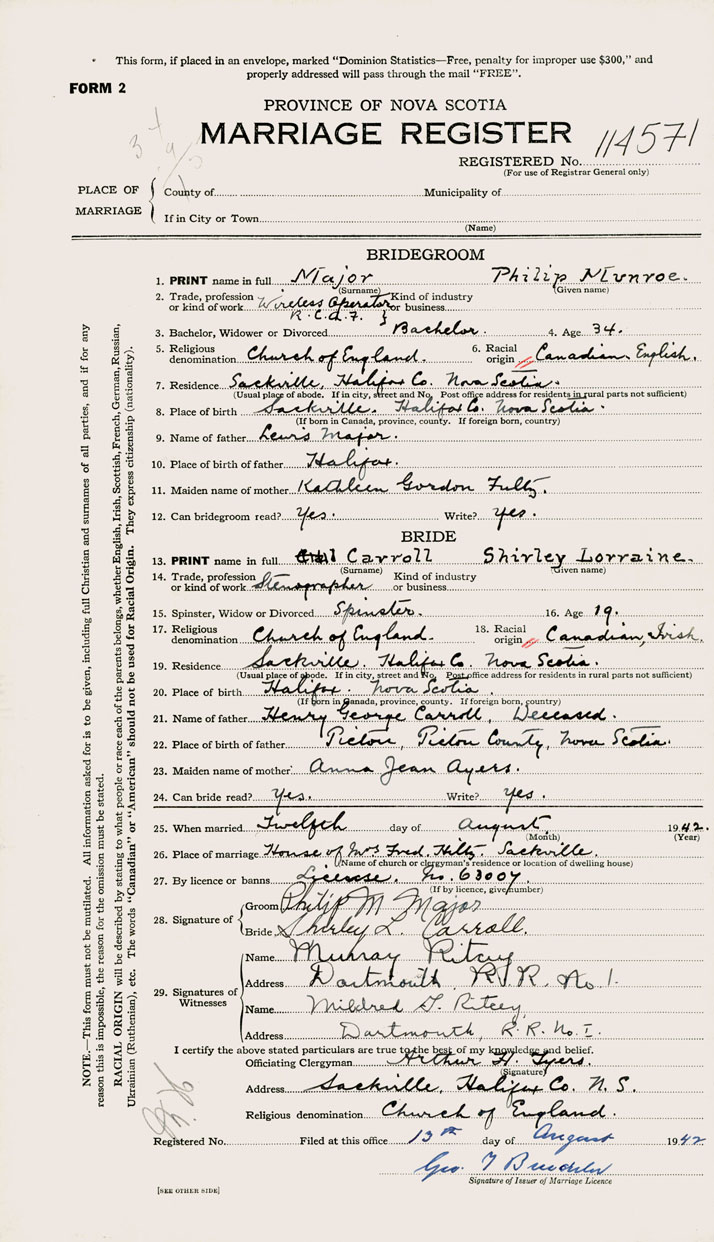 This form, if placed in an envelope, marked "Dominion Statistics—Free, penalty for improper use $300," and
properly addressed will pass through the mail "FREE".
FORM 2
PROVINCE OF NOVA SCOTIA
MARRIAGE REGISTER
114571
REGISTERED No.
(For use of Registrar General only)
PLACE OF MARRIAGE
County of Municipality of
If in City or Town
(Name)
BRIDEGROOM
1. PRINT name in full Major Philip Munroe.
(Surname) (Given name)
2. Trade, profession or kind of work Wireless Operator R.C.A.F. Kind of industry or business
3. Bachelor, Widower or Divorced Bachelor. 4. Age 34.
5. Religious denomination Church of England. 6. Racial origin Canadian, English.
7. Residence Sackville, Halifax Co. Nova Scotia.
(Usual place of abode. If in city, street and No. Post office address for residents in rural parts not sufficient)
8. Place of birth Sackville. Halifax Co. Nova Scotia.
(If born in Canada, province, county. If foreign born, country)
9. Name of father Lewis Major.
10. Place of birth of father Halifax.
11. Maiden name of mother Kathleen Gordon Fultz.
12. Can bridegroom read? Yes. Write? Yes.
BRIDE
13. PRINT name in full Carroll Shirley Lorraine.
(Surname) (Given name)
14. Trade, profession or kind of work Stenographer Kind of industry or business
15. Spinster, Widow or Divorced Spinster. 16. Age 19.
17. Religious denomination Church of England. 18. Racial origin Canadian, Irish.
19. Residence Sackville. Halifax Co. Nova Scotia.
(Usual place of abode. If in city, street and No. Post office address for residents in rural parts not sufficient)
20. Place of birth Halifax. Nova Scotia.
(If born in Canada, province, county. If foreign born, country)
21. Name of father Henry George Carroll, Deceased.
22. Place of birth of father Pictou, Pictou County, Nova Scotia.
23. Maiden name of mother Anna Jean Ayers.
24. Can bride read? Yes. Write? Yes.
25. When married Twelfth day of August, 1942.
(Month) (Year)
26. Place of marriage House of Mrs Fred. Hiltz, Sackville.
(Name of church or clergyman's residence or location of dwelling house)
27. By licence or banns License. No. 63007.
(If by licence, give number)
28. Signature of
Groom Philip M Major
Bride Shirley L. Carroll.
29. Signatures of Witnesses
Name Murray Ritcey
Address Dartmouth R.R. No 1.
Name Mildred G. Ritcey
Address Dartmouth, R.R. No. 1.
I certify the above stated particulars are true to the best of my knowledge and belief.
Officiating Clergyman Arthur H. Tyers.
(Signature)
Address Sackville, Halifax Co. N.S.
Religious denomination Church of England.
Registered No. Filed at this office 13th day of August 1942
Geo.
Signature of Issuer of Marriage Licence
[SEE OTHER SIDE]
NOTE.—This form must not be mutilated. All information asked for is to be given, including full Christian and surnames of all parties, and if for any
reason this is impossible, the reason for the omission must be stated.
RACIAL ORIGIN will be described by stating to what people or race each of the parents belongs, whether English, Irish, Scottish, French, German, Russian,
Ukrainian (Ruthenian), etc. The words "Canadian" or "American" should not be used for Racial Origin. They express citizenship (nationality).